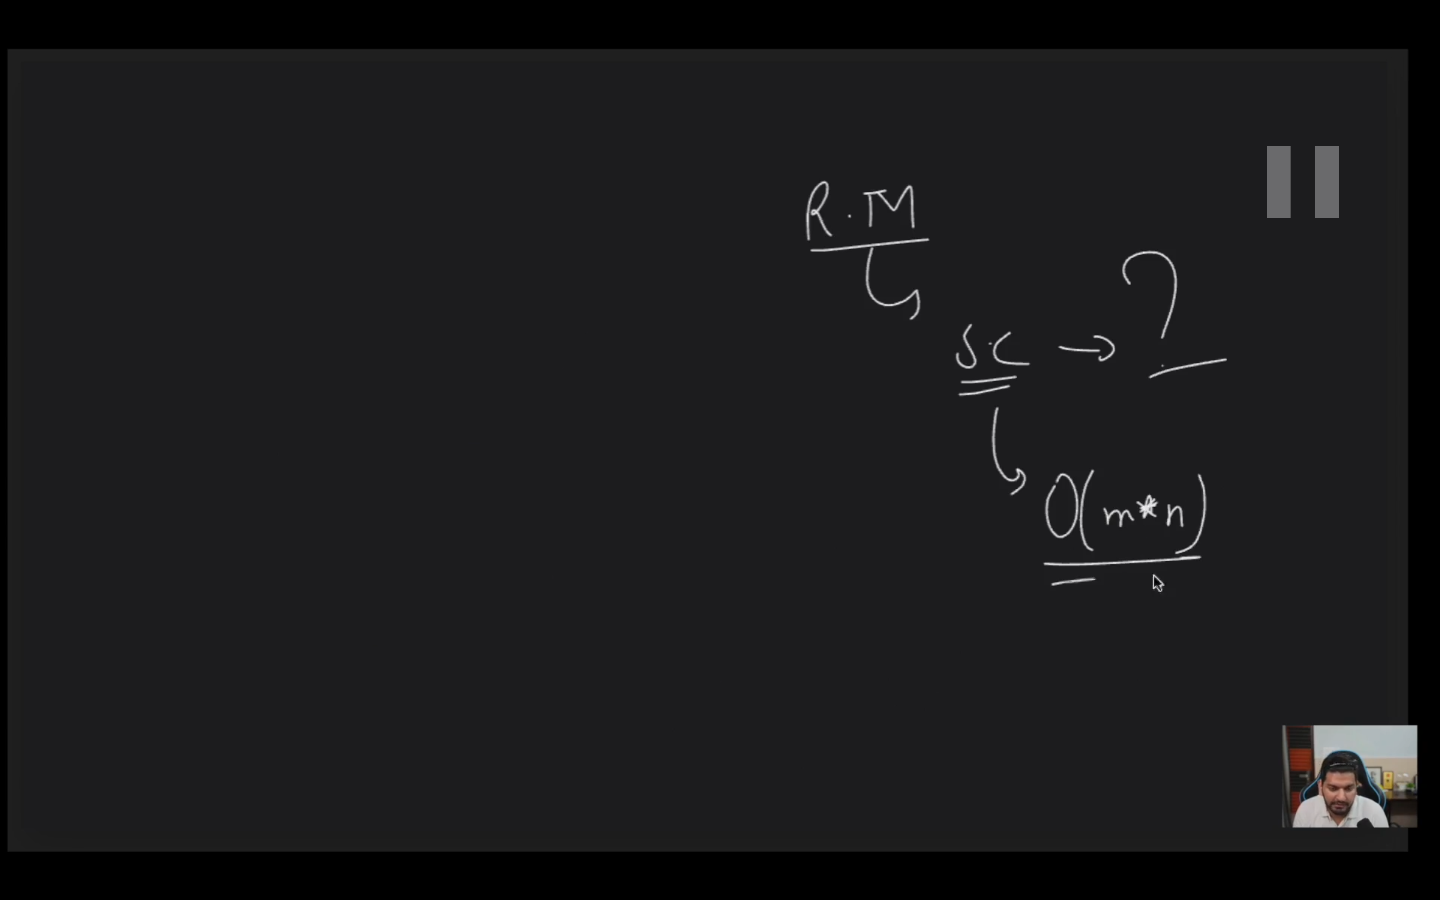 R.M
S.C → ?
O(m*n)